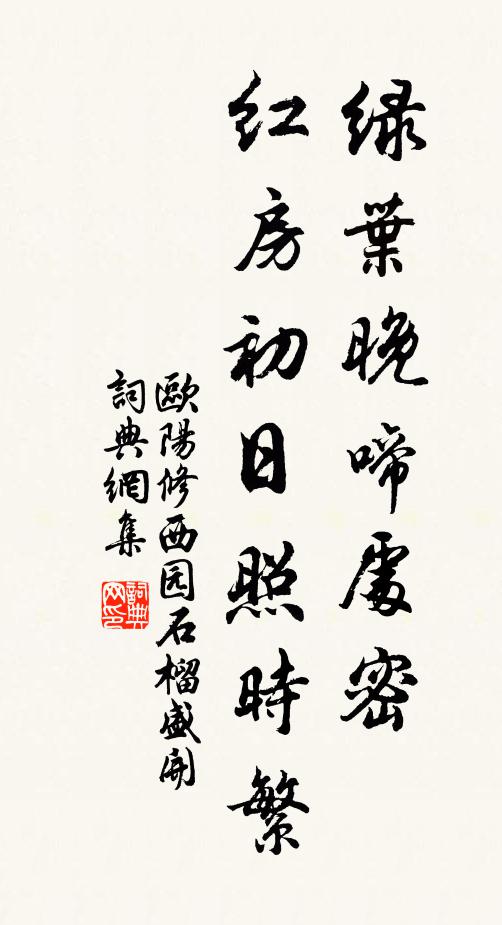 緑葉晚啼處密
紅房初日照時繁
歐陽修西园石榴盛開
詞典網集
詞典
网印